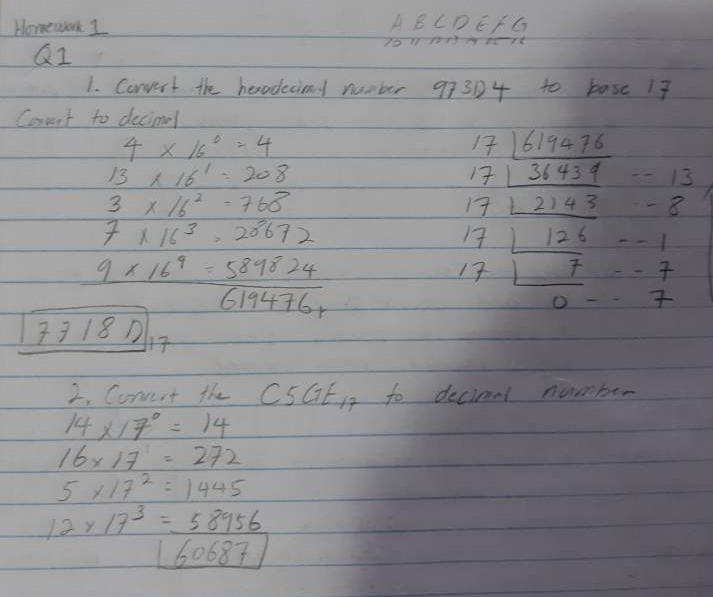 Homework 1
A B C D E F G
10 11 12 13 14 15 16
Q1
1. Convert the hexadecimal number 973D4 to base 17
Convert to decimal
4 × 16⁰ = 4
13 × 16¹ = 208
3 × 16² = 768
7 × 16³ = 28672
9 × 16⁴ = 589824
619476
17 | 619476
17 | 36439 -- 13
17 | 2143 -- 8
17 | 126 -- 1
17 | 7 -- 7
0 -- 7
7718D₁₇
2. Convert the C5GE₁₇ to decimal number
14 × 17⁰ = 14
16 × 17¹ = 272
5 × 17² = 1445
12 × 17³ = 58956
60687